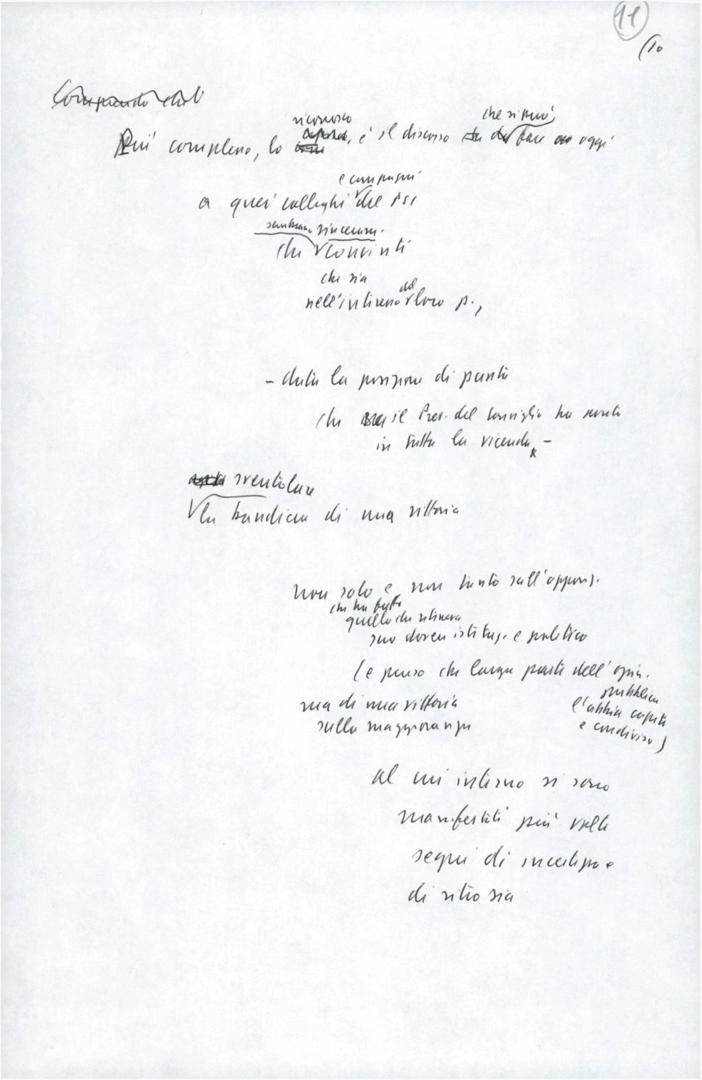 11
10
riconosco che si può
Più complesso, lo è il discorso fare oggi
e compagni
a quei colleghi del PSI
sinceram.
che convinti
che sia
del
nell'interesse loro p.,
- data la posizione di punta
che il Pres. del Consiglio ha
in tutta la vicenda -
sventolare
la bandiera di una vittoria
non solo e non tanto sull'oppos.
che ha fatto
quello che riteneva
suo dovere istituz. e politico
(e penso che larga parte dell'opin.
pubblica
ma di una vittoria l'abbia capito
sulla maggioranza e condiviso)
al cui interno si sono
manifestati più volte
segni di incertezza e
di ritrosia